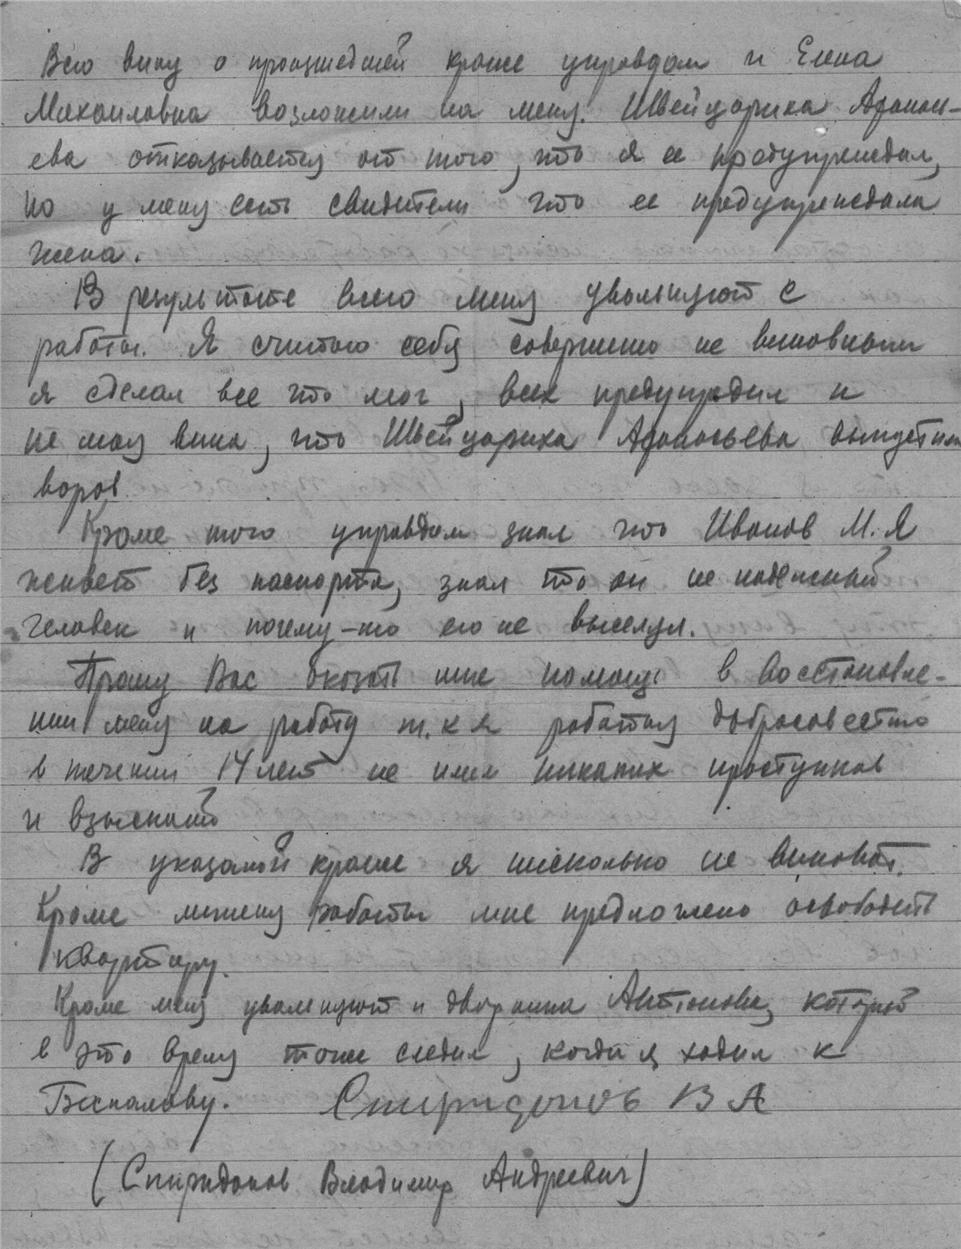 Всю вину о происшедшей краже управдом и Елена
Михайловна возложили на меня. Швейцариха Афанась-
ева отказывается от того, что я ее предупреждал,
но у меня есть свидетели что ее предупреждала
жена.
В результате всего меня увольняют с
работы. Я считаю себя совершенно не виновным
я сделал все что мог, всех предупредил и
не моя вина, что Швейцариха Афанасьева выпустила
воров.
Кроме того управдом знал что Иванов М.Я
живет без паспорта, знал что он не надежный
человек и почему-то его не выселял.
Прошу Вас оказать мне помощь в восстановле-
нии меня на работу т.к я работал добросовестно
в течении 14 лет не имел никаких проступков
и взысканий
В указаной краже я нисколько не виноват.
Кроме лишения работы мне предложено освободить
квартиру.
Кроме меня увольняют и дворника Антонова, который
в это время тоже следил, когда я ходил к
Беспалову. Спиридонов В А
(Спиридонов Владимир Андреевич)